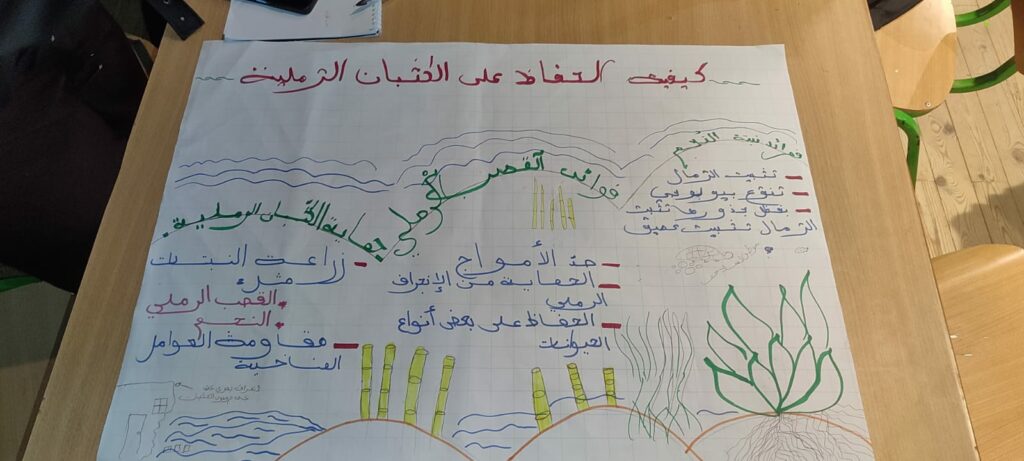 كيفية الحفاظ على الكثبان الرملية
فوائد نبتة النجم
تثبيت الرمال
تنوع بيولوجي
بفضل جذورها تثبت
الرمال تثبيت عميق
فوائد القصب الرملي
حدّ الأمواج
الحماية من الإنجراف
الرملي
الحفاظ على بعض أنواع
الحيوانات
حماية الكثبان الرملية
زراعة النبتت
مثل:
القصب الرملي
النجم
مقاومة العوامل
المناخية